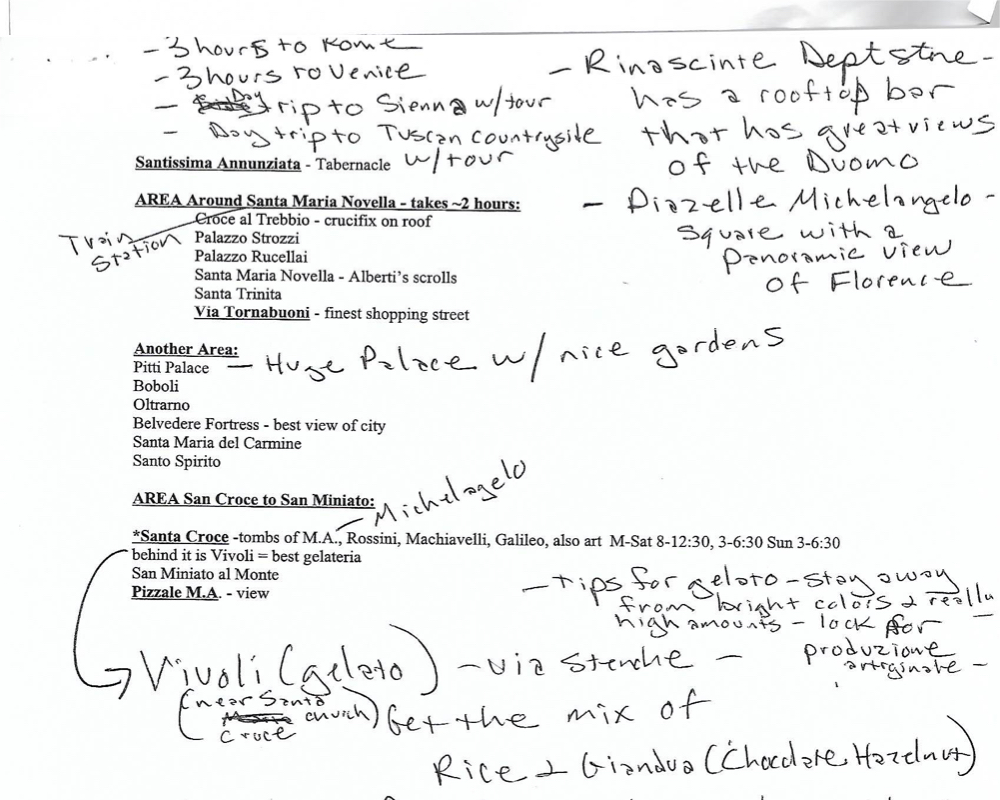 - 3 hours to Rome
- 3 hours to Venice
- Day trip to Sienna w/tour
- Day trip to Tuscan countryside
w/tour
- Rinascinte Dept stre -
has a rooftop bar
that has great views
of the Duomo
- Piazelle Michelangelo -
Square with a
panoramic view
of Florence
Santissima Annunziata - Tabernacle
AREA Around Santa Maria Novella - takes ~2 hours:
Train
Station
Croce al Trebbio - crucifix on roof
Palazzo Strozzi
Palazzo Rucellai
Santa Maria Novella - Alberti's scrolls
Santa Trinita
Via Tornabuoni - finest shopping street
Another Area:
Pitti Palace - Huge Palace w/ nice gardens
Boboli
Oltrarno
Belvedere Fortress - best view of city
Santa Maria del Carmine
Santo Spirito
AREA San Croce to San Miniato:
Michelagelo
*Santa Croce -tombs of M.A., Rossini, Machiavelli, Galileo, also art M-Sat 8-12:30, 3-6:30 Sun 3-6:30
behind it is Vivoli = best gelateria
San Miniato al Monte
Pizzale M.A. - view
- tips for gelato - stay away
from bright colors & really
high amounts - look for
produzione
artiginate -
Vivoli (gelato) - via Stenche -
(near Santa
Croce church)
Get the mix of
Rice & Giandua (Chocolate, Hazelnut)